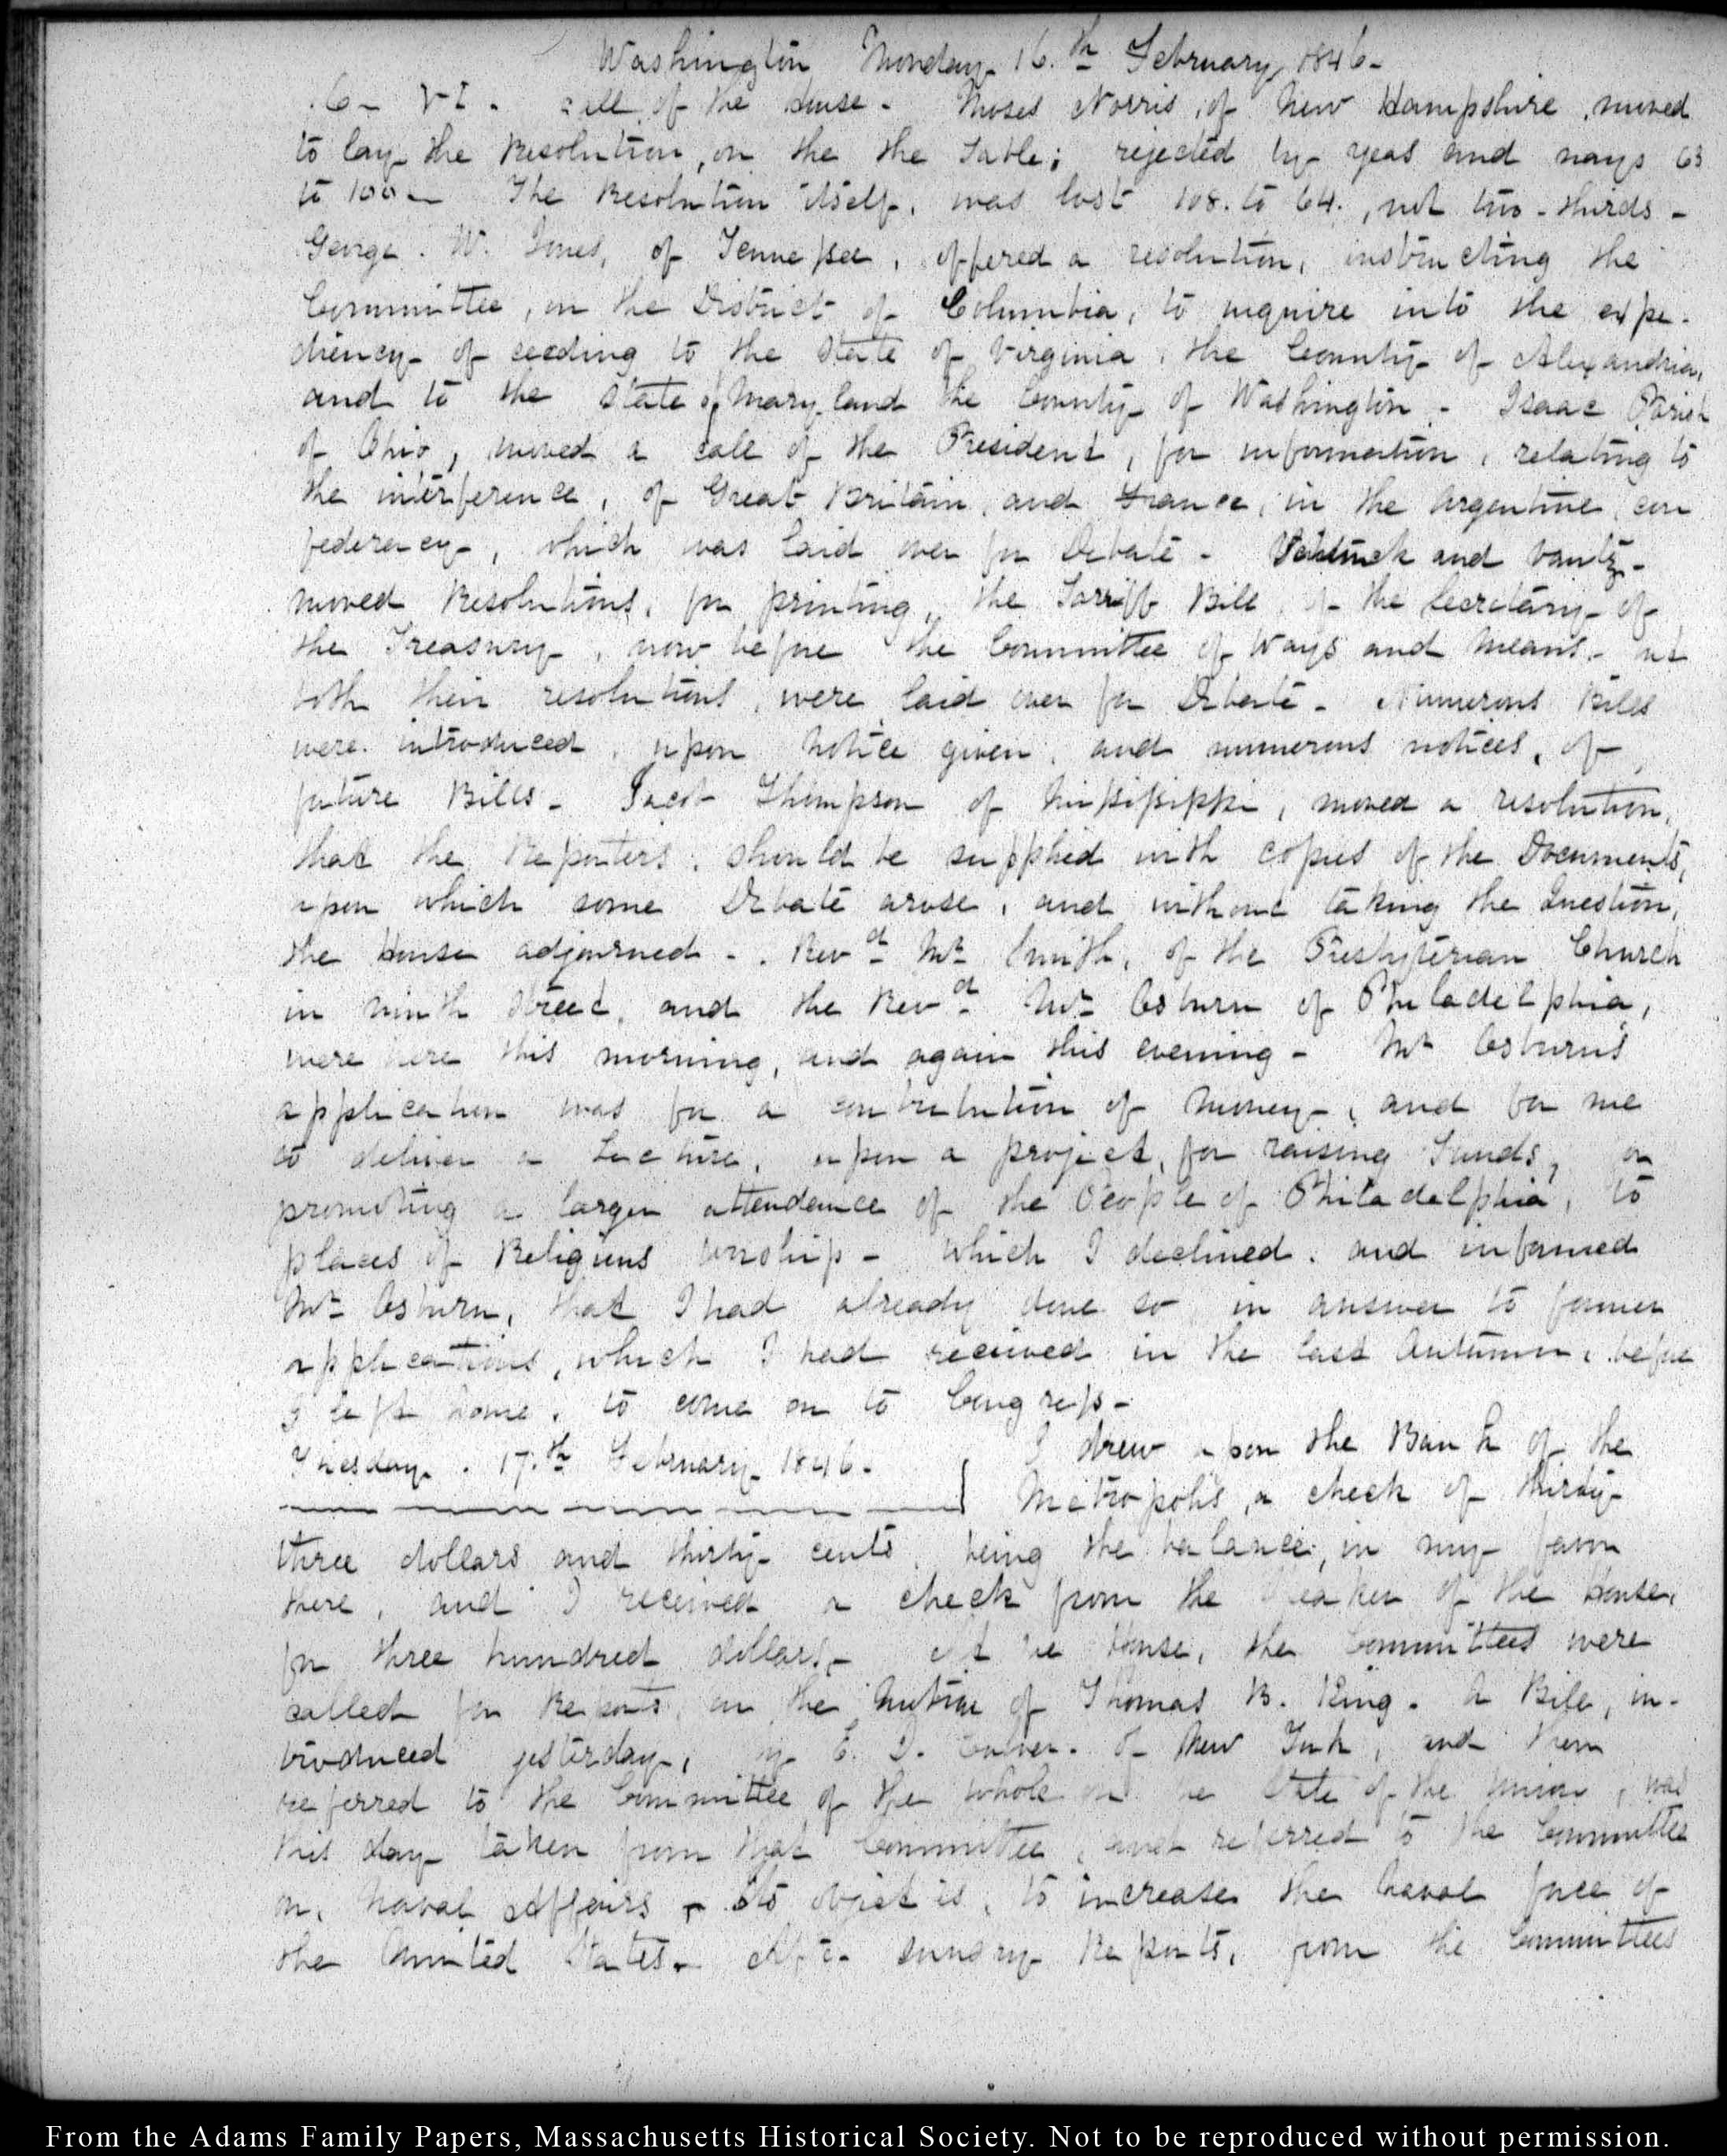 Washington Monday 16.th February 1846-
.6- VI. call of the House- Moses Norris, of New Hampshire, moved
to lay the Resolution, on the the Table; rejected by yeas and nays 63
to 100- The Resolution itself, was lost 108. to 64., not two-thirds-
George. W. Jones, of Tennessee, offered a resolution, instructing the
Committee, on the District of Columbia, to inquire into the expe-
diency- of ceeding to the State of Virginia, the County of Alexandria,
and to the State of Maryland the County of Washington- Isaac Parish
of Ohio, moved a call of the President, for information, relating to
the interference, of Great Britain, and France, in the Argentine, con
federacy-, which was laid over for Debate- and Vance-
moved Resolutions, for printing, the Tariff Bill, of the Secretary of
the Treasury-, now before the Committee of Ways and Means-
both their resolutions, were laid over for Debate- Numerous Bills
were introduced, upon notice given, and numerous notices, of
future Bills- Jacob Thompson of Missisippi, moved a resolution,
that the Reporters, should be supplied with copies of the Documents,
upon which some Debate arose, and without taking the Question,
the House adjourned-. Revd Mr Smith, of the Presbyterian Church
in ninth Street, and the Revd Mr Osburn of Philadelphia,
were here this morning, and again this evening- Mr Osburn's
application was for a contribution of money-, and for me
to deliver a Lecture, upon a project, for raising Funds, or
promoting a larger attendance of the People of Philadelphia, to
places of Religious worship- which I declined, and informed
Mr Osburn, that I had already done so, in answer to former
applications, which I had received in the last Autumn, before
I left home, to come on to Congress-
Tuesday. 17.th February 1846.
I drew upon the Bank of the
Metropolis, a check of thirty-
three dollars and thirty- cents, being the balance, in my- favor
there, and I received a check from the Speaker of the House,
for three hundred dollars- At the House, the Committees were
called for Reports, on the motion of Thomas B. King. A Bill, in-
troduced yesterday, by E. D. Culver. of New York, and then
referred to the Committee of the whole on the State of the Union, was
this day- taken from that Committee, and referred to the Committee
on, Naval Affairs- its object is, to increase the Naval force of
the United States. After sundry- Reports, from the Committees
From the Adams Family Papers, Massachusetts Historical Society. Not to be reproduced without permission.